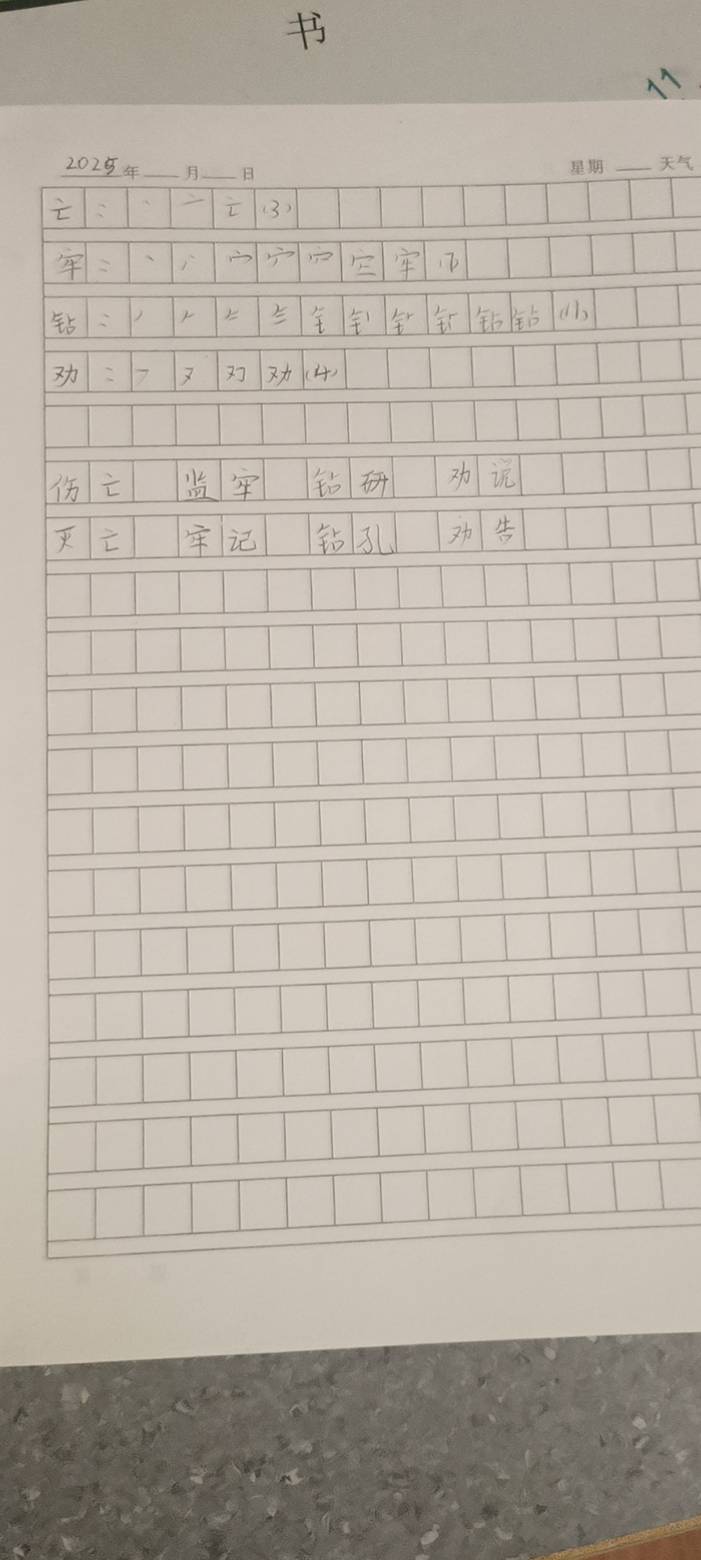 书
11
2025年 月 日 星期 天气
亡：丶 亠 亡(3)
牢：丶 丷 宀 宀 宀 牢 牢(7)
钻：丿 钅 钻 钻(11)
劝：フ 又 劝 劝(4)
伤亡 监牢 钻研 劝说
灭亡 牢记 钻孔 劝告